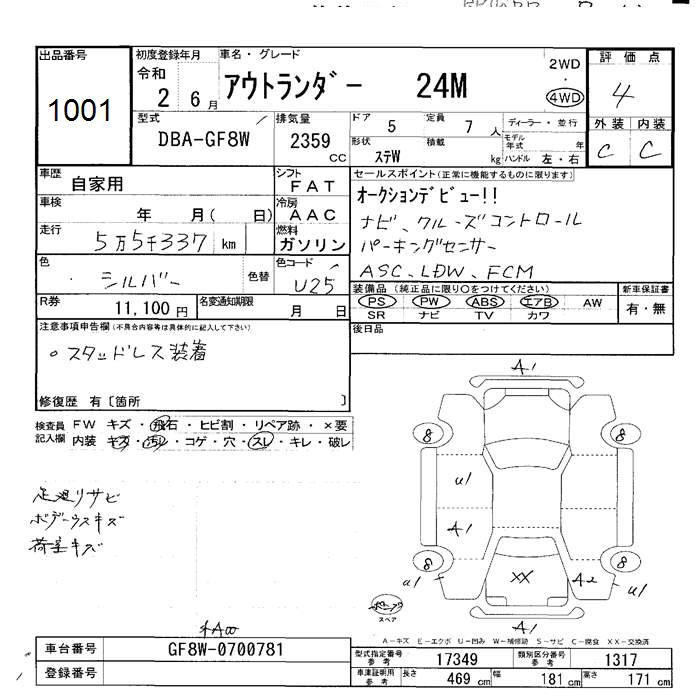 出品番号
1001
初度登録年月
令和
2 6月
車名・グレード
アウトランダー 24M
2WD
・
4WD
評価点
4
型式
DBA-GF8W
排気量
2359
CC
ドア 5
定員 7 人
ディーラー・並行
形状 ステW
積載 kg
モデル年式 年
ハンドル 左・右
外装 内装
C C
車歴
自家用
シフト
FAT
車検
年 月( 日)
冷房
AAC
走行
5万5千337 km
燃料
ガソリン
色
シルバー
色替
色コード
U25
R券
11,100円
名変通知期限
月 日
セールスポイント(正常に機能するものに限ります)
オークションデビュー!!
ナビ、クルーズコントロール
パーキングセンサー
ASC、LDW、FCM
装備品(純正品に限り○をつけてください)
PS PW ABS エアB AW
SR ナビ TV カワ
新車保証書
有・無
後日品
注意事項申告欄(不具合内容等は具体的に記入して下さい)
○スタッドレス装着
修復歴 有〔箇所 〕
検査員
記入欄
FW キズ・飛石・ヒビ割・リペア跡・×要
内装 キズ・汚レ・コゲ・穴・スレ・キレ・破レ
足廻リサビ
ボデーウスキズ
荷室キズ
A1
8 8
U1
A1
8 8
U1 XX A2 U1
スペア
A1
A-キズ E-エクボ U-凹み W-補修跡 S-サビ C-腐食 XX-交換済
車台番号
GF8W-0700781
登録番号
型式指定番号
参考
17349
類別区分番号
参考
1317
車庫証明用
参考
長さ 469 cm
幅 181 cm
高さ 171 cm